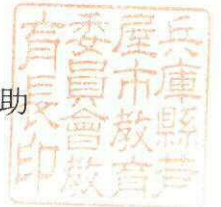 助
兵庫縣芦
屋市教育
委員會教
育長印